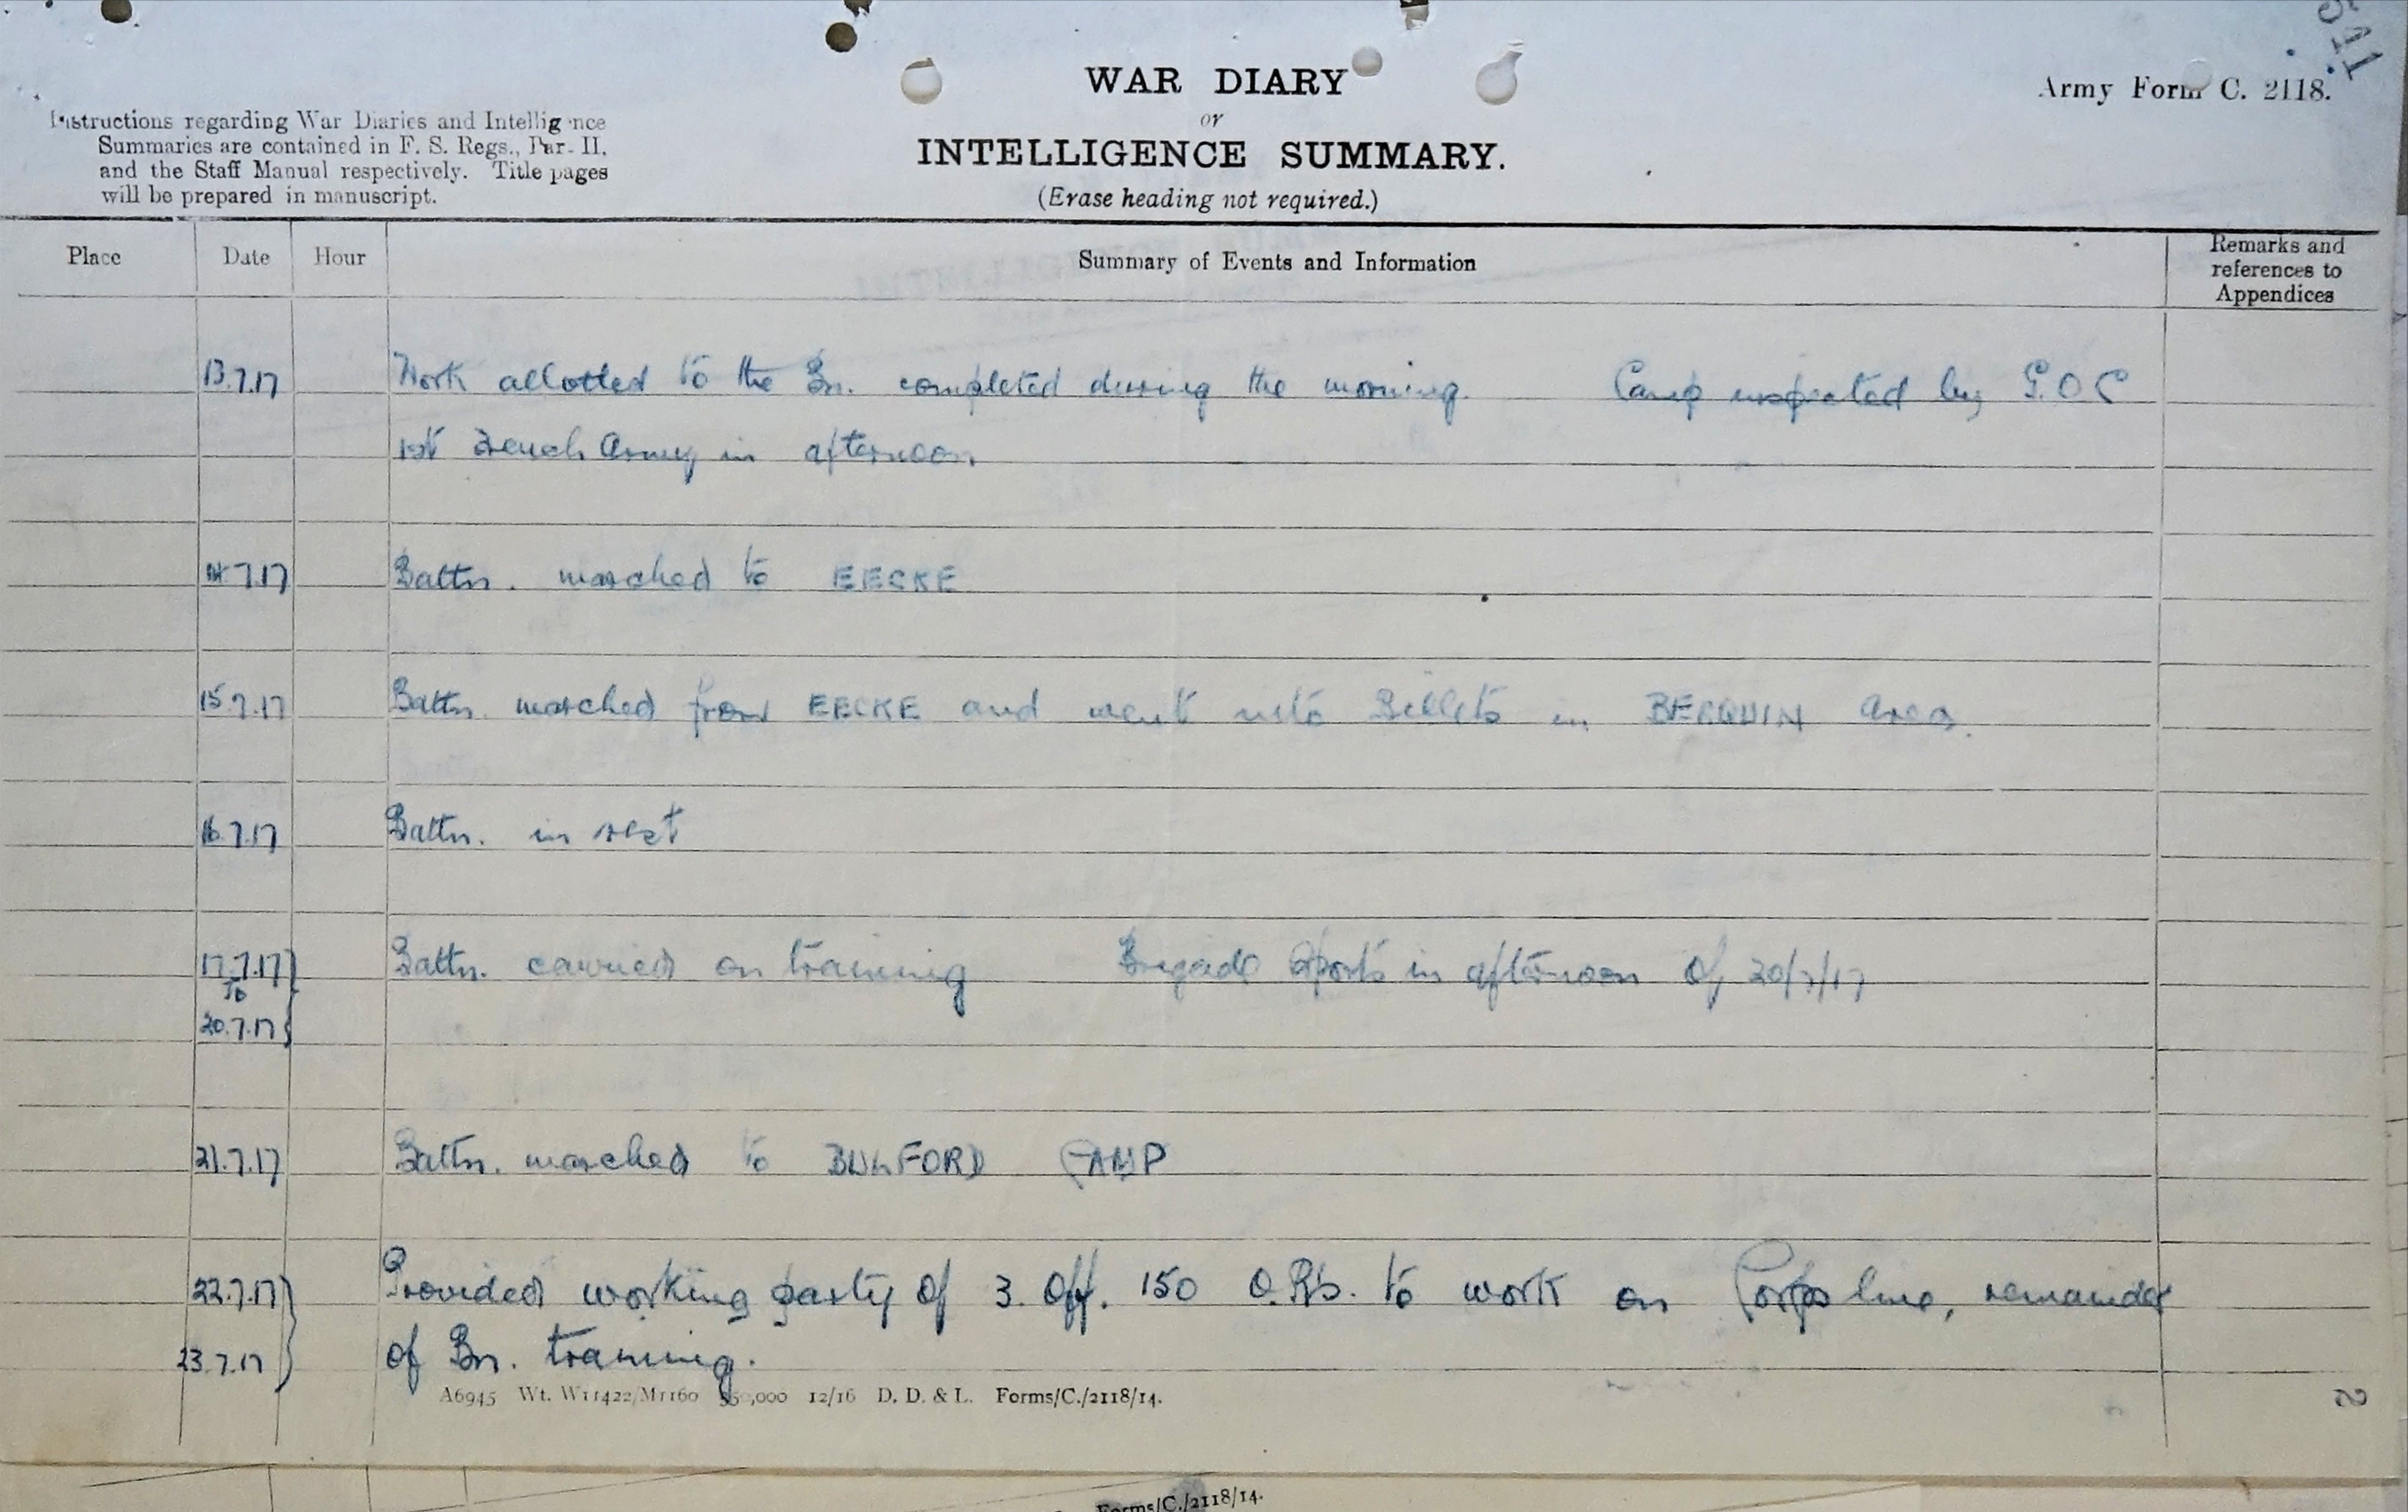 511
Army Form C. 2118.
WAR DIARY
or
INTELLIGENCE SUMMARY.
(Erase heading not required.)
Instructions regarding War Diaries and Intelligence
Summaries are contained in F. S. Regs., Part II.
and the Staff Manual respectively. Title pages
will be prepared in manuscript.
Place Date Hour Summary of Events and Information Remarks and
references to
Appendices
13.7.17 Work allotted to the Bn. completed during the morning. Camp inspected by G.O.C
1st French Army in afternoon.
14.7.17 Battn. marched to EECKE
15.7.17 Battn. marched from EECKE and went into Billets in BERQUIN area.
16.7.17 Battn. in rest
17.7.17 Battn. carried on training Brigade Sports in afternoon of 20/7/17
to
20.7.17
21.7.17 Battn. marched to BULFORD CAMP
22.7.17 Provided working party of 3. Off. 150 O.Rs. to work on Corps line, remainder
23.7.17 of Bn. training.
A6945 Wt. W11422/M1160 350,000 12/16 D. D. & L. Forms/C./2118/14.
2
Forms/C./2118/14.